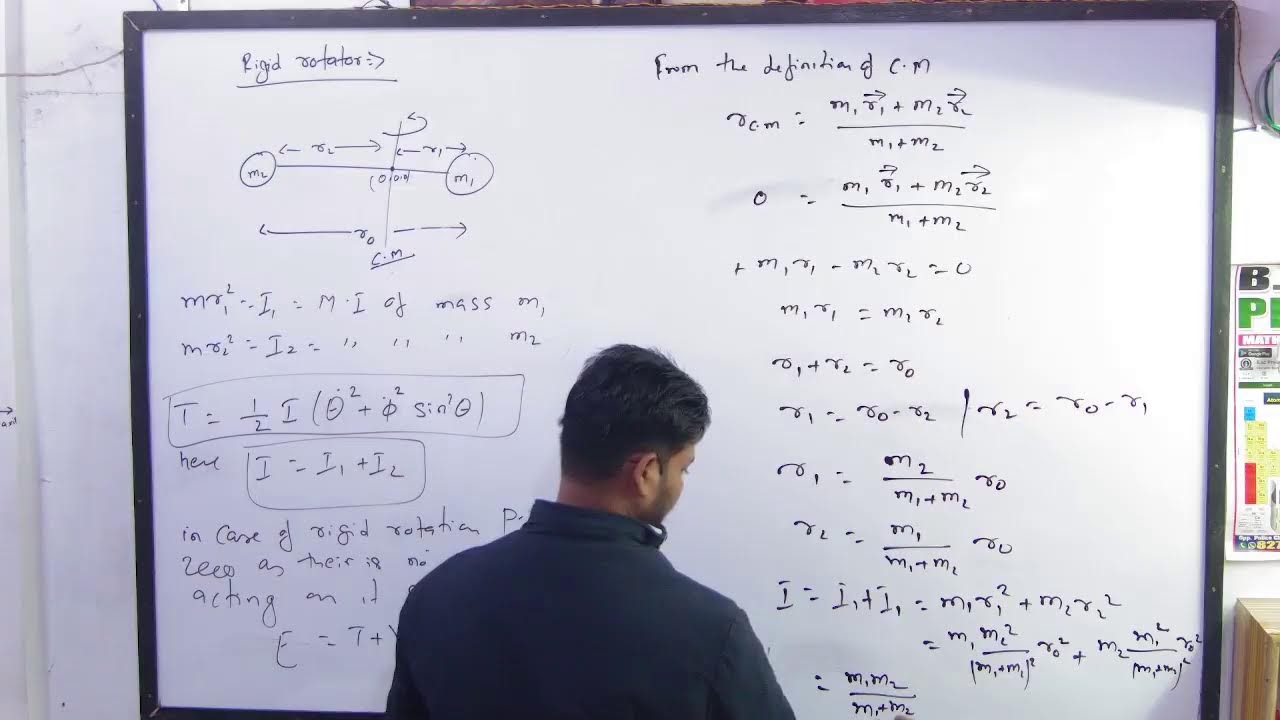 Rigid rotator:⇒
← r₂ → ← r₁ →
m₂ (0,0,0) m₁
← r₀ →
C.M
mr₁² = I₁ = M·I of mass m₁
mr₂² = I₂ = ,, ,, ,, m₂
T = 1/2 I (θ̇² + φ̇² sin²θ)
here I = I₁ + I₂
in case of rigid rotation P.
zero as their is no
acting on it
E = T +
From the definition of C.M
r_C.m = (m₁r⃗₁ + m₂r⃗₂)/(m₁+m₂)
0 = (m₁r⃗₁ + m₂r⃗₂)/(m₁+m₂)
+ m₁r₁ - m₂r₂ = 0
m₁r₁ = m₂r₂
r₁ + r₂ = r₀
r₁ = r₀ - r₂ | r₂ = r₀ - r₁
r₁ = m₂/(m₁+m₂) r₀
r₂ = m₁/(m₁+m₂) r₀
I = I₁ + I₁ = m₁r₁² + m₂r₂²
= m₁ m₂²/(m₁+m₂)² r₀² + m₂ m₁²/(m₁+m₂)² r₀²
= m₁m₂/(m₁+m₂)
B.
P
MATH
Google Play
Opp. Police C
827